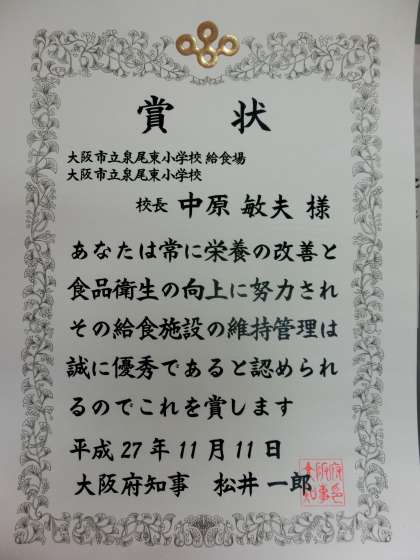 賞状
大阪市立泉尾東小学校 給食場
大阪市立泉尾東小学校
校長 中原 敏夫 様
あなたは常に栄養の改善と
食品衛生の向上に努力され
その給食施設の維持管理は
誠に優秀であると認められ
るのでこれを賞します
平成 27 年 11 月 11 日
大阪府知事 松井 一郎